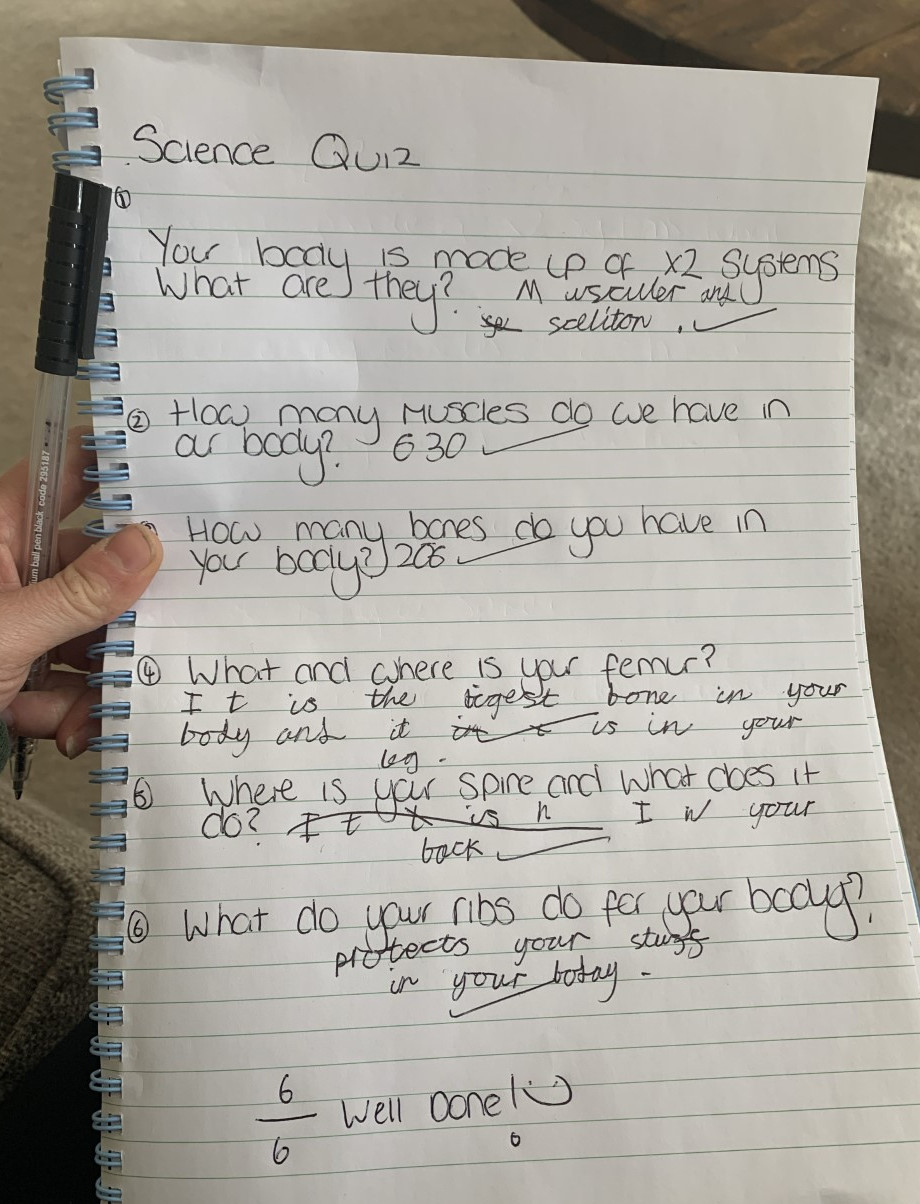 Science Quiz
①
Your body is made up of x2 systems
What are they? Musculer and
sceliton .
② How many Muscles do we have in
our body? 630
How many bones do you have in
your body? 206
④ What and where is your femur?
It is the bigest bone in your
body and it is in your
leg.
⑤ Where is your spine and what does it
do? It is in your
back
⑥ What do your ribs do for your body?
protects your stuff
in your botay.
6
6
Well Done!
um ball pen black code 295187